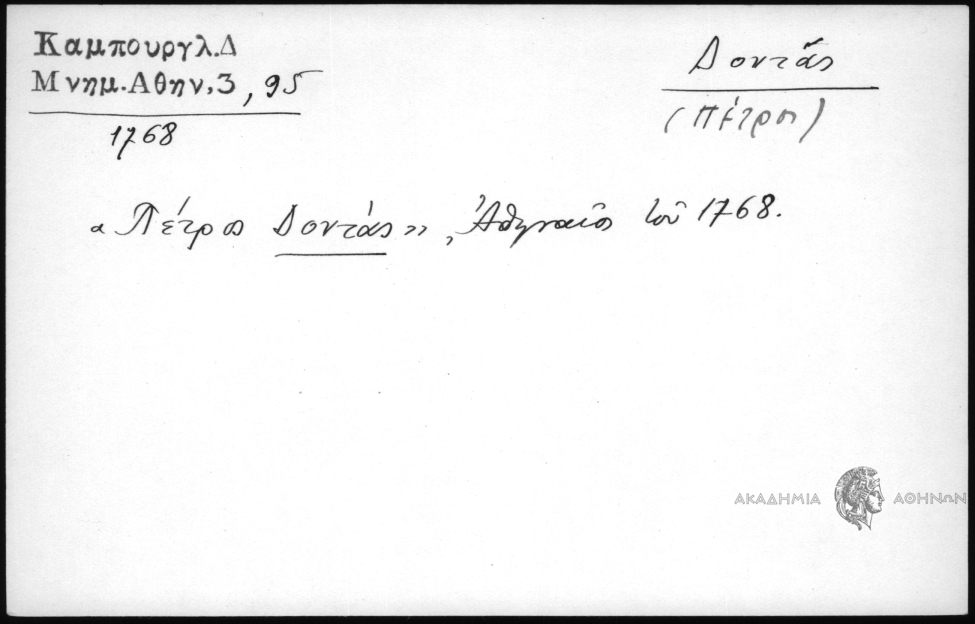 Καμπουργλ.Δ
Μνημ.Αθην.3, 95
1768
Δοντᾶς
(Πέτρος)
«Πέτρος Δοντάς», Ἀθηναῖος τοῦ 1768.
ΑΚΑΔΗΜΙΑ ΑΘΗΝΩΝ